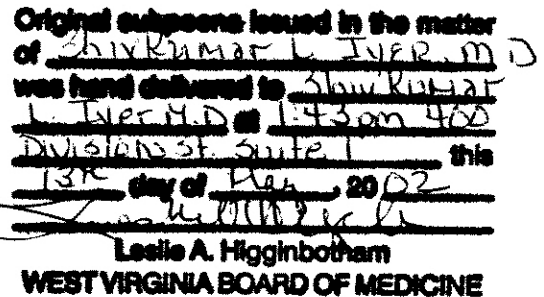 Original subpoena issued in the matter
of Shivkumar L. Iyer, M D
was hand delivered to Shivkumar
L. Iyer M.D at 1:43 pm 400
Division St. Suite 1 this
13th day of May, 2002
Leslie A. Higginbotham
WEST VIRGINIA BOARD OF MEDICINE